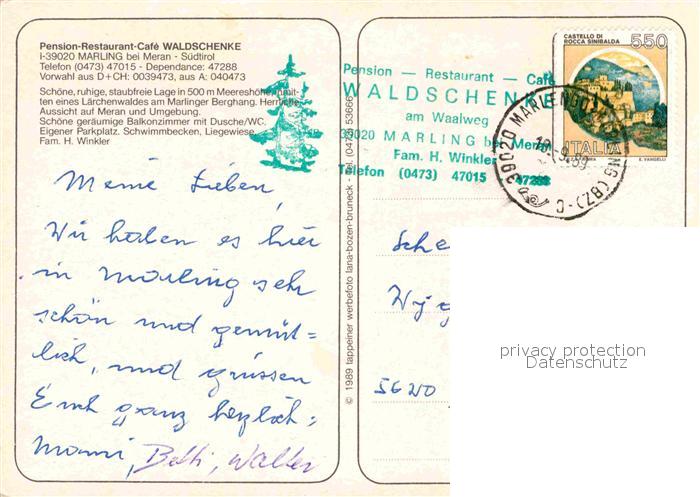 Pension-Restaurant-Café WALDSCHENKE
I-39020 MARLING bei Meran - Südtirol
Telefon (0473) 47015 - Dependance: 47288
Vorwahl aus D+CH: 0039473, aus A: 040473
Schöne, ruhige, staubfreie Lage in 500 m Meereshöhe, inmit-
ten eines Lärchenwaldes am Marlinger Berghang. Herrliche
Aussicht auf Meran und Umgebung.
Schöne geräumige Balkonzimmer mit Dusche/WC.
Eigener Parkplatz. Schwimmbecken, Liegewiese.
Fam. H. Winkler
Meine Lieben,
Wir haben es hier
in Marling sehr
schön und gemüt=
lich, und grüssen
Euch ganz herzlich:
Mami, Betti, Walter
© 1989 tappeiner werbefoto lana-bozen-bruneck - (0473) 53666
Pension — Restaurant — Café
WALDSCHENKE
am Waalweg
39020 MARLING bei Meran
Fam. H. Winkler
Telefon (0473) 47015 47288
CASTELLO DI
ROCCA SINIBALDA
550
ITALIA
E. VANGELLI
39020 MARLENGO
(BZ)-C
Sche
Wyg
5620
privacy protection
Datenschutz